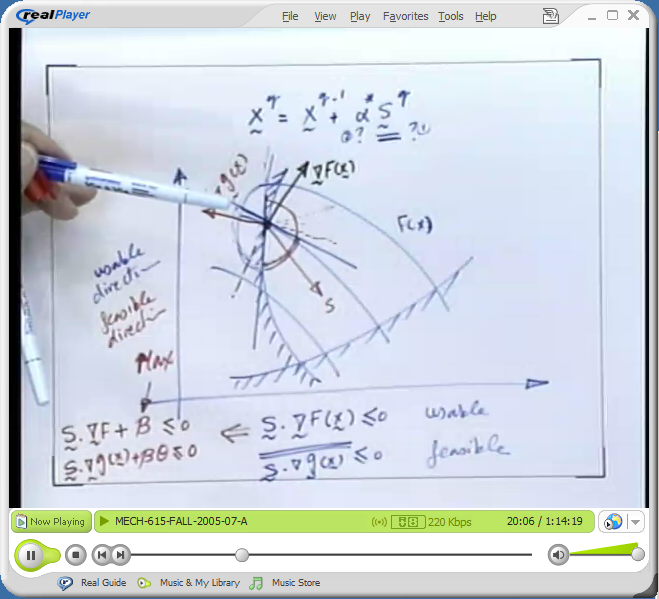 realPlayer
File View Play Favorites Tools Help
X^q = X^q-1 + α* S^q
②? ?①
∇g(x)
∇F(x)
F(x)
S
usable
direction
feasible
direction
Max
S.∇F + β ≤ 0 ⇐ S.∇F(x) ≤ 0 usable
S.∇g(x)+βθ ≤ 0 S.∇g(x) ≤ 0 feasible
Now Playing MECH-615-FALL-2005-07-A 220 Kbps 20:06 / 1:14:19
Real Guide Music & My Library Music Store